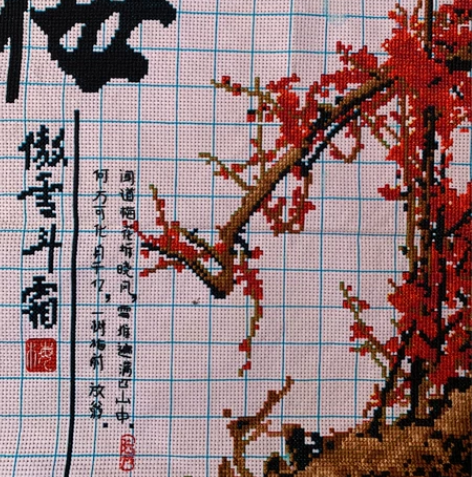 梅
傲雪斗霜
梅
闻道梅花坼晓风,雪堆遍满四山中.
何方可化身千亿,一树梅前一放翁.